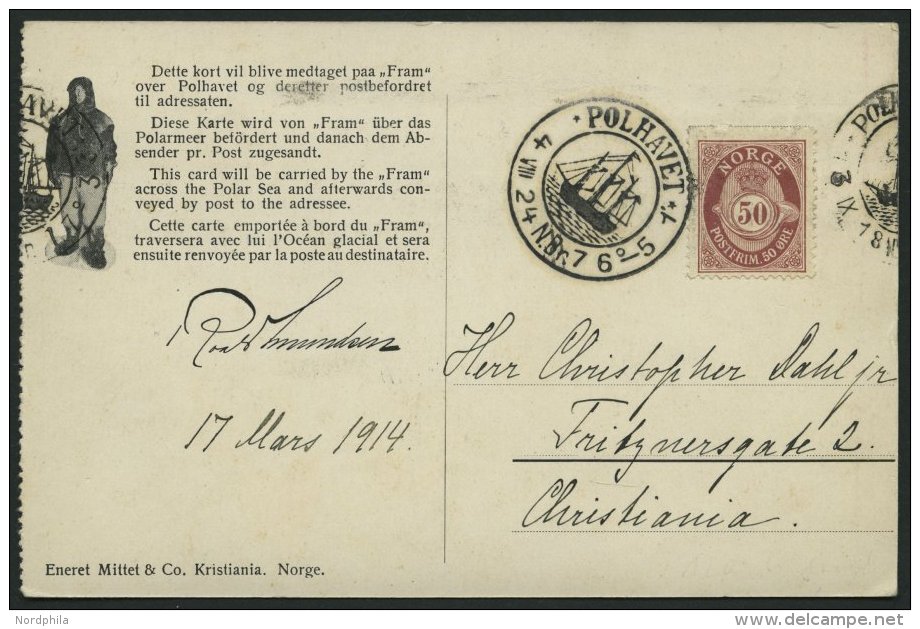 Dette kort vil blive medtaget paa „Fram“
over Polhavet og derefter postbefordret
til adressaten.
Diese Karte wird von „Fram“ über das
Polarmeer befördert und danach dem Ab-
sender pr. Post zugesandt.
This card will be carried by the „Fram“
across the Polar Sea and afterwards con-
veyed by post to the adressee.
Cette carte emportée à bord du „Fram“,
traversera avec lui l'Océan glacial et sera
ensuite renvoyée par la poste au destinataire.
Roald Amundsen
17 Mars 1914.
Eneret Mittet & Co. Kristiania. Norge.
POLHAVET
4 VIII 24
NORGE
50
POSTFRIM. 50 ØRE
Herr Christopher Dahl jr
Fritznersgate 2.
Christiania.
Nordphila
www.delcampe.net